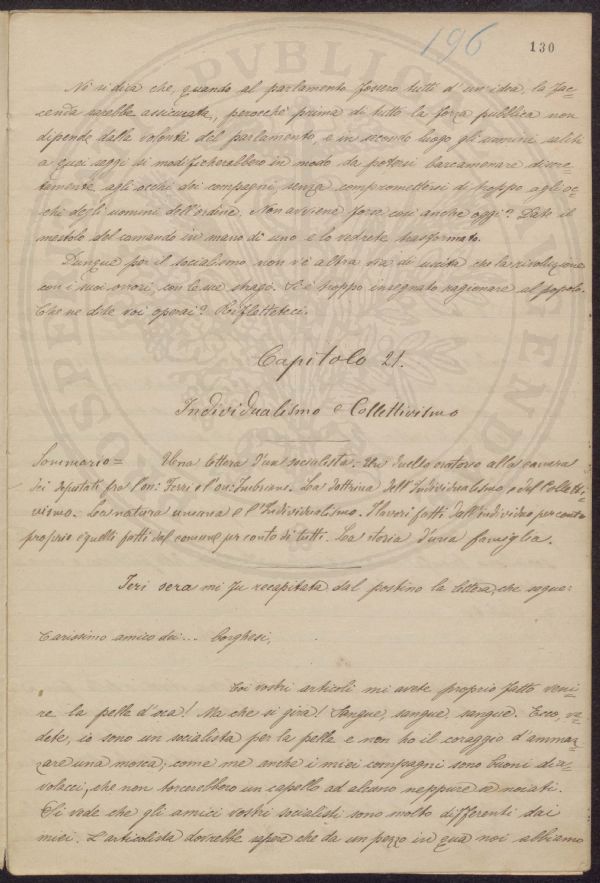 196
130
Nè si dica che, quando al parlamento fossero tutti d'un'idea, la fac=
cenda sarebbe assicurata, perocchè prima di tutto la forza pubblica non
dipende dalla volontà del parlamento, e in secondo luogo gli uomini saliti
a quei seggi si modificherebbero in modo da potersi barcamenare discre=
tamente agli occhi dei compagni, senza compromettersi di troppo agli oc=
chi degli uomini dell'ordine. Non avviene forse così anche oggi? Date il
mestolo del comando in mano di uno e lo vedrete trasformato.
Dunque per il socialismo non v'è altra via di uscita che la rivoluzione
con i suoi orrori, con le sue stragi. Si è troppo insegnato ragionare al popolo.
Che ne dite voi operai? Rifletteteci.
Capitolo 21.
Individualismo e Collettivismo
Sommario = Una lettera d'un socialista. Un duello oratorio alla camera
dei deputati fra l'on: Ferri e l'on: Imbriani. La dottrina dell'Individualismo e del Colletti=
vismo. La natura umana e l'Individualismo. I lavori fatti dall'individuo per conto
proprio e quelli fatti dal comune per conto di tutti. La storia d'una famiglia.
Ieri sera mi fu recapitata dal postino la lettera, che segue:
Carissimo amico dei... borghesi,
Coi vostri articoli mi avete proprio fatto veni=
re la pelle d'oca! Ma che si gira! Sangue, sangue, sangue. Ecco, ve=
dete, io sono un socialista per la pelle e non ho il coraggio d'ammaz=
zare una mosca; come me anche i miei compagni sono buoni dia=
volacci, che non torcerebbero un capello ad alcuno neppure se noiati.
Si vede che gli amici vostri socialisti sono molto differenti dai
miei. L'articolista dovrebbe sapere che da un pezzo in qua noi abbiamo